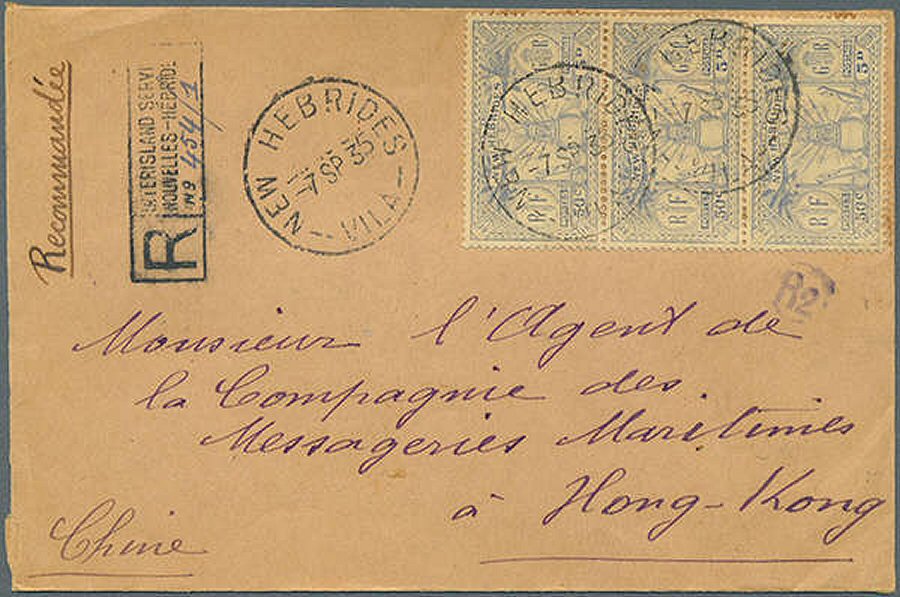 Recommandée
R
INTERISLAND SERVI
NOUVELLES-HEBRIDE
Nº 454/1
NEW HEBRIDES
7 SP 35
VILA
NEW HEBRIDES
7 SP 35
5ᴰ
5ᴰ
RF
50c
RF
50c
RF
50c
R2
Monsieur l'Agent de
la Compagnie des
Messageries Maritimes
à Hong-Kong
Chine